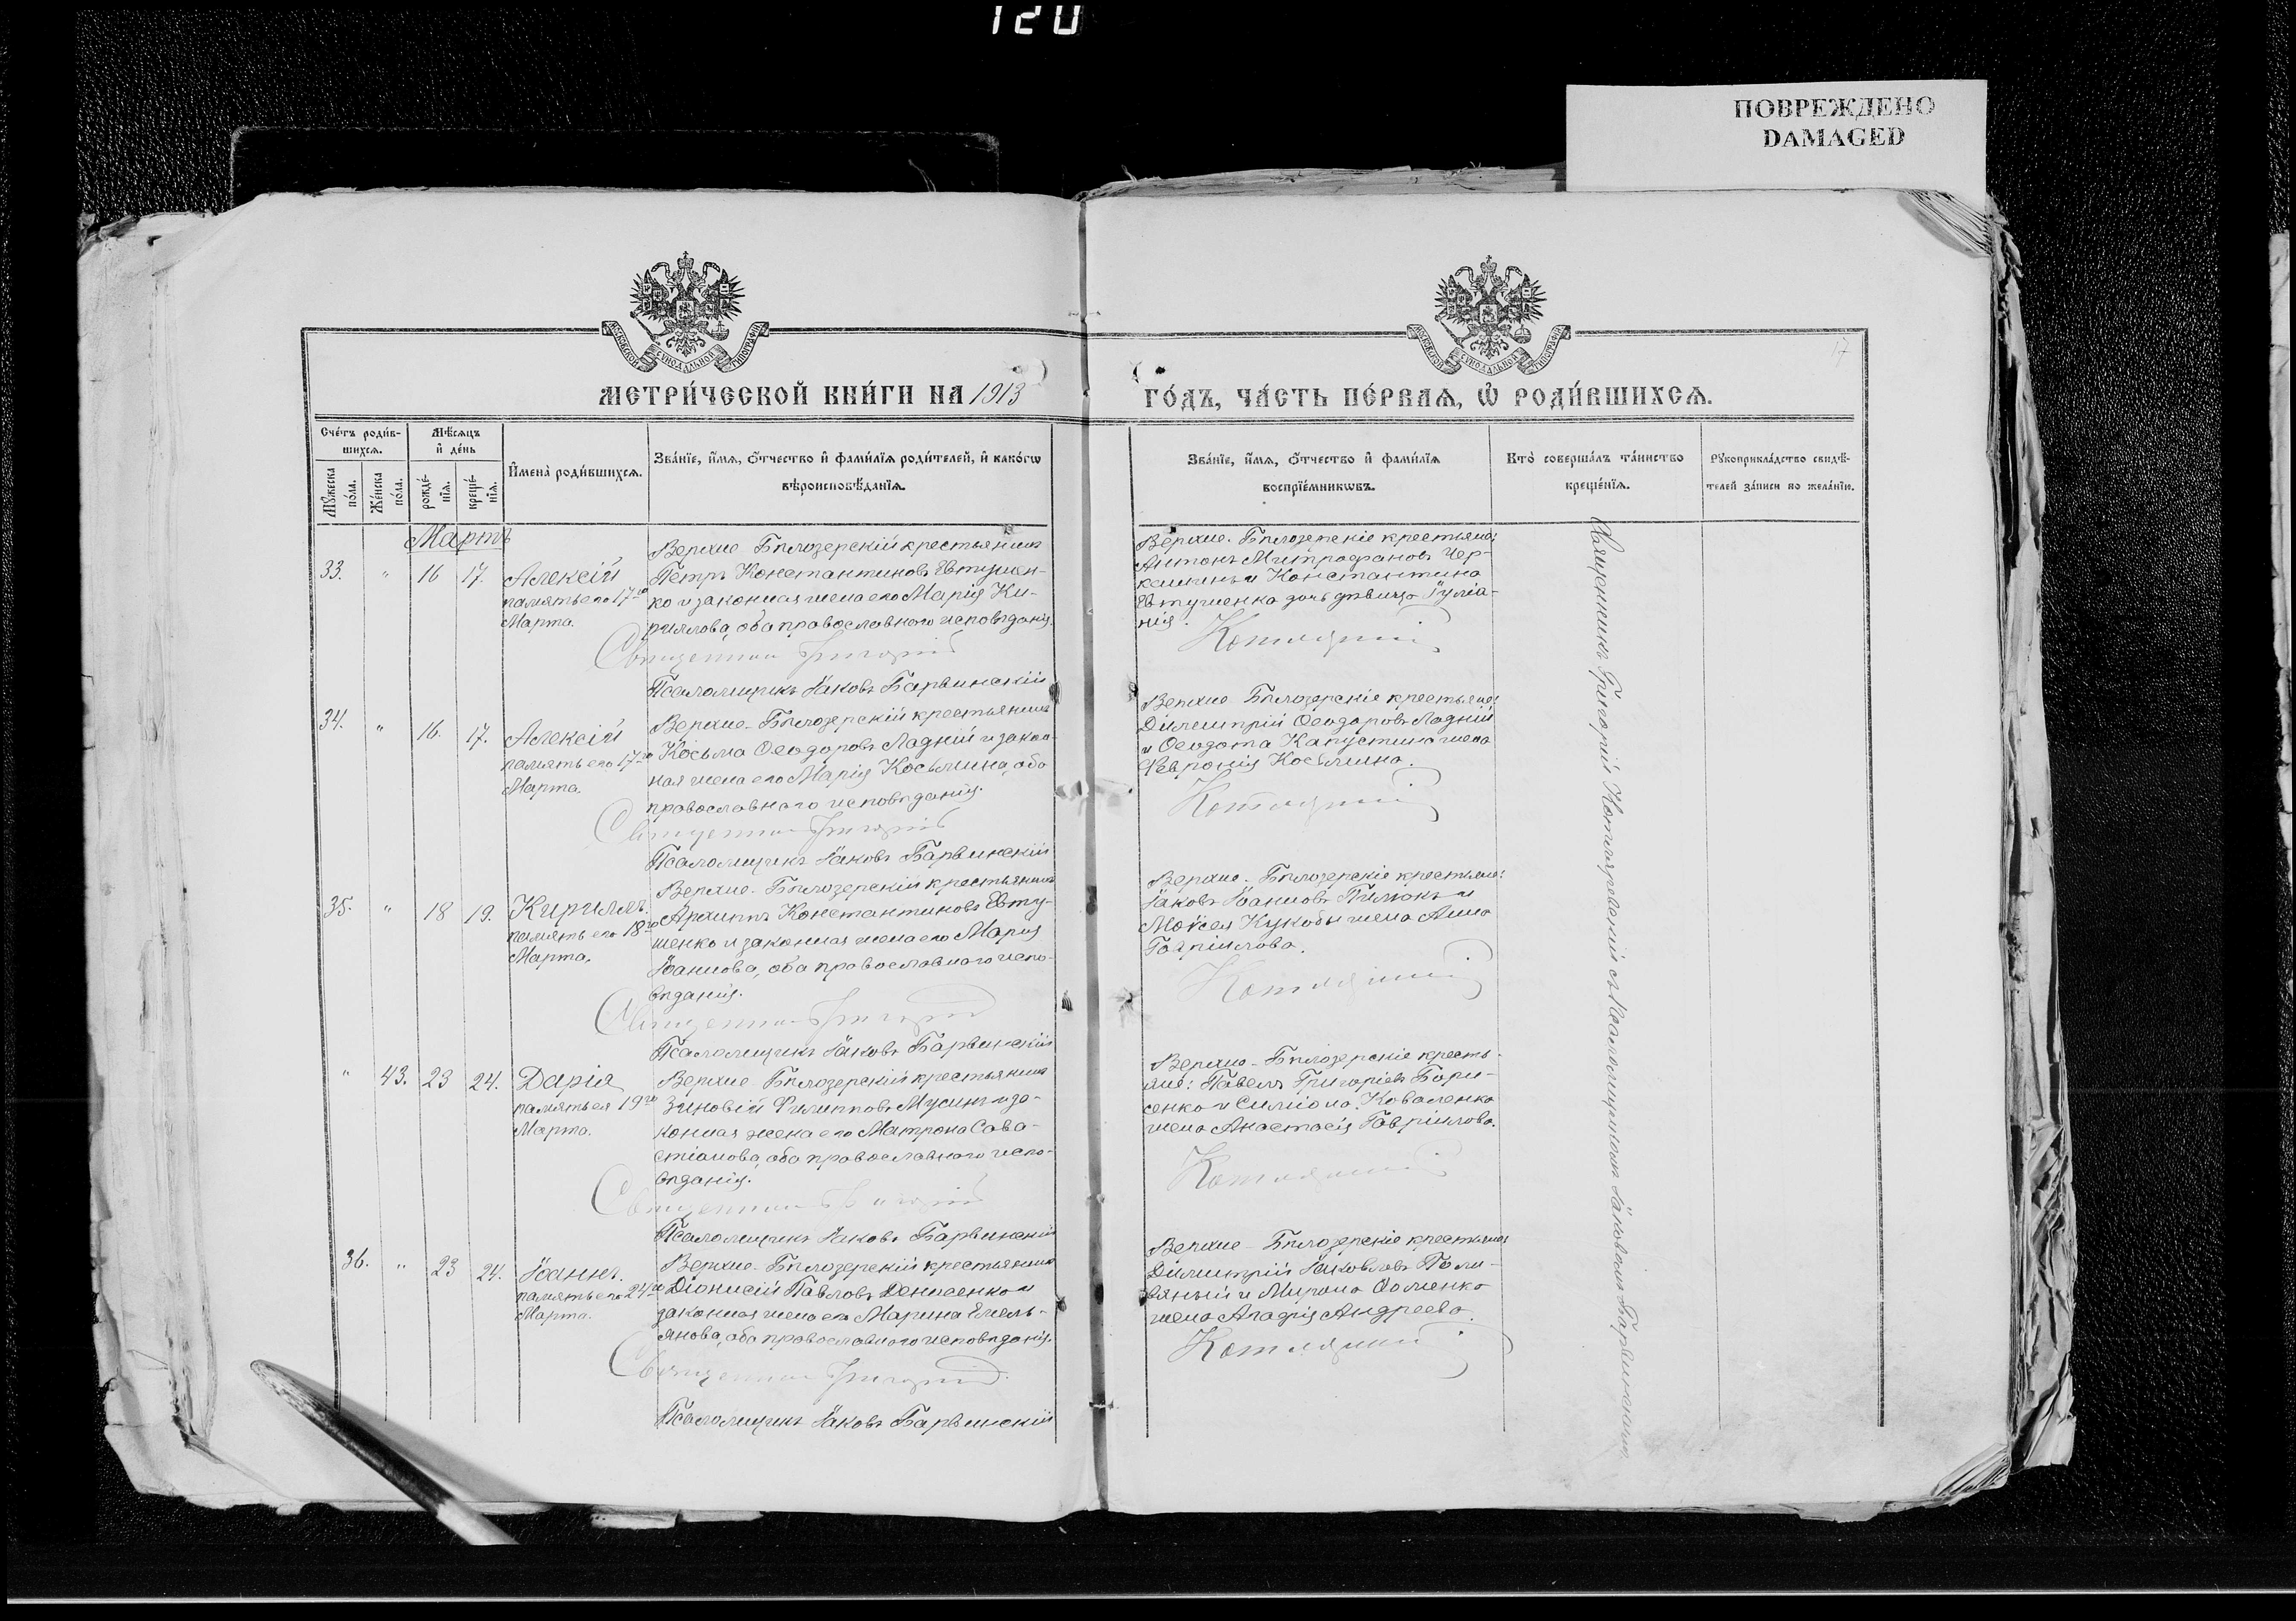 120
ПОВРЕЖДЕНО
DAMAGED
МОСКОВСКОЙ СѴНОДАЛЬНОЙ ТИПОГРАФІИ
МОСКОВСКОЙ СѴНОДАЛЬНОЙ ТИПОГРАФІИ
17
МЕТРИ́ЧЕСКОЙ КНИ́ГИ НА 1913
ГО́ДЪ, ЧА́СТЬ ПЕ́РВАѦ, Ѡ҆ РОДИ́ВШИХСѦ.
Сче́тъ роди́в-
шихсѧ.
Мꙋ́жеска по́ла.
Же́нска по́ла.
Мѣ́сѧцъ
и҆ де́нь
рожде́-
нїѧ.
креще́-
нїѧ.
И҆мена̀ роди́вшихсѧ.
Зва́нїе, и҆́мѧ, ѻ҆́тчество и҆ фами́лїѧ роди́телей, и҆ како́гѡ
вѣроисповѣ́данїѧ.
Зва́нїе, и҆́мѧ, ѻ҆́тчество и҆ фами́лїѧ
воспрїе́мникѡвъ.
Кто̀ соверша́лъ та́инство
креще́нїѧ.
Рꙋкоприкла́дство свидѣ́-
телей за́писи по жела́нїю.
Мартъ
33. " 16 17. Алексій
память его 17го
Марта.
Верхне-Бѣлозерскій крестьянинъ
Петръ Константиновъ Евтушен-
ко и законная жена его Марія Ки-
риллова, оба православнаго исповѣданія.
Священникъ Григорій
Псаломщикъ Іаковъ Барвинскій
Верхне-Бѣлозерскіе крестьяне:
Антонъ Митрофановъ Чер-
кашинъ и Константина
Евтушенка дочь дѣвица Іуліа-
нія.
34. " 16. 17. Алексій
память его 17го
Марта.
Верхне-Бѣлозерскій крестьянинъ
Косьма Ѳеодоровъ Ладній и закон-
ная жена его Марія Косьмина, оба
православнаго исповѣданія.
Священникъ Григорій
Псаломщикъ Іаковъ Барвинскій
Верхне-Бѣлозерскіе крестьяне:
Димитрій Ѳеодоровъ Ладній
и Ѳеодота Капустина жена
Февронія Косьмина.
35. " 18 19. Кириллъ.
память его 18го
Марта.
Верхне-Бѣлозерскій крестьянинъ
Архиппъ Константиновъ Евту-
шенко и законная жена его Марія
Іоаннова, оба православнаго испо-
вѣданія.
Священникъ Григорій
Псаломщикъ Іаковъ Барвинскій
Верхне-Бѣлозерскіе крестьяне:
Іаковъ Іоанновъ и
Моѵсея Кукобы жена Анна
Гавріилова.
" 43. 23 24. Дарія
память ея 19го
Марта.
Верхне-Бѣлозерскій крестьянинъ
Зиновій Филипповъ Мусинъ и за-
конная жена его Матрона Сава-
стіанова, оба православнаго испо-
вѣданія.
Священникъ Григорій
Псаломщикъ Іаковъ Барвинскій
Верхне-Бѣлозерскіе кресть-
яне: Павелъ Григоріевъ Бори-
сенко и Симеона Коваленка
жена Анастасія Гавріилова.
36. " 23 24. Іоаннъ.
память его 24го
Марта.
Верхне-Бѣлозерскій крестьянинъ
Діонисій Павловъ Денисенко и
законная жена его Марина Емель-
янова, оба православнаго исповѣданія.
Священникъ Григорій
Псаломщикъ Іаковъ Барвинскій
Верхне-Бѣлозерскіе крестьяне:
Димитрій Іаковлевъ Поли-
вяный и Мирона
жена Агафія Андреева.
Священникъ Григорій съ Псаломщикомъ Іаковомъ Барвинскимъ